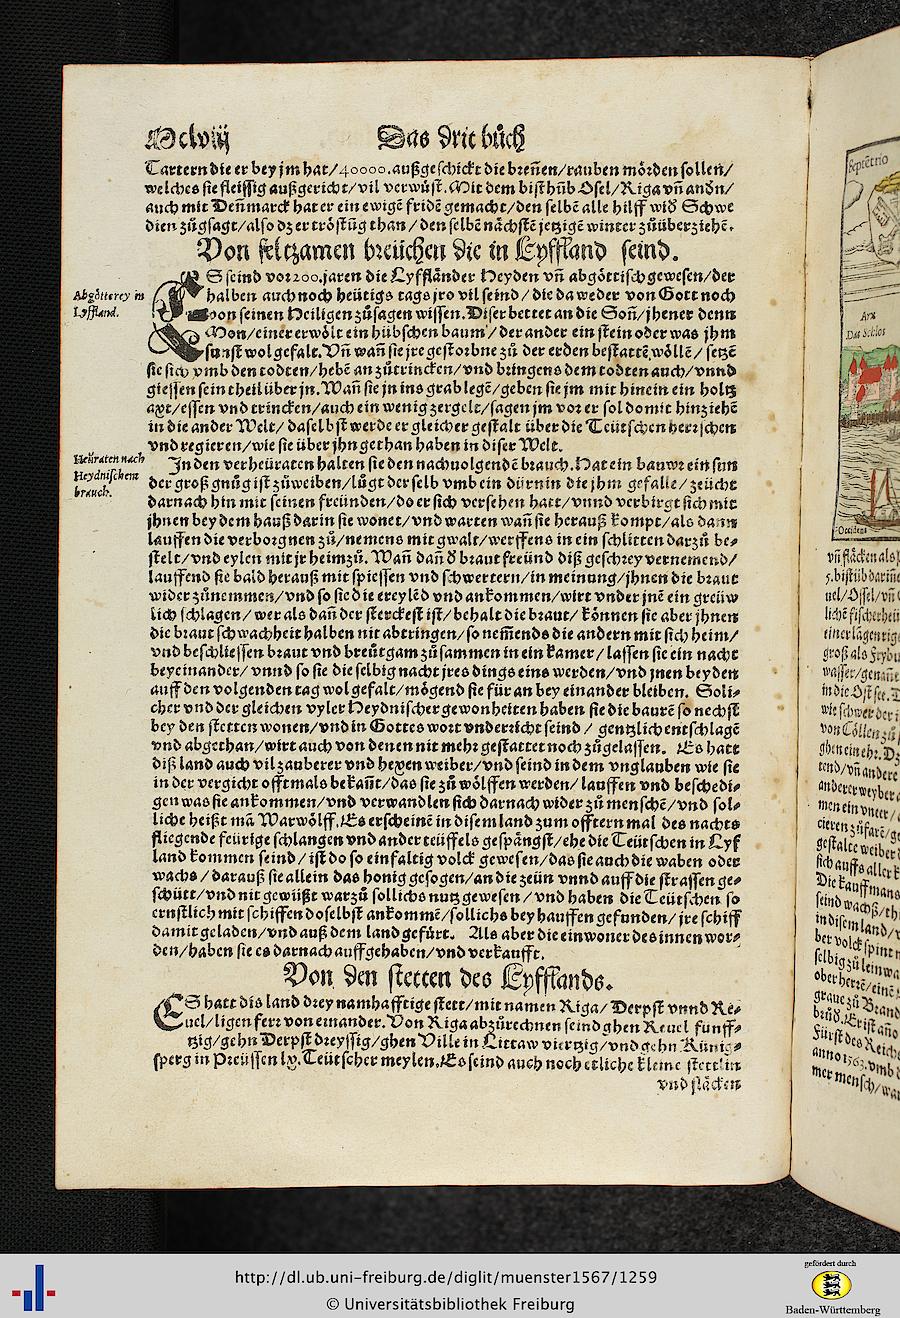 Mclviij Das drit bůch
Tartern die er bey jm hat/40000. außgeschickt die breñen/rauben mörden sollen/
welches sie fleissig außgericht/vil verwüst. Mit dem bisthůb Osel/Riga vñ andñ/
auch mit Deñmarck hat er ein ewigẽ fridẽ gemacht/den selbẽ alle hilff wiđ Schwe
dien zůgsagt/also dz er tröstůg than/den selbẽ nächstẽ jetzigẽ winter zůüberziehẽ.
Von seltzamen breüchen die in Lyffland seind.
Abgötterey in
Lyffland.
ES seind vor 200. jaren die Lyffländer Heyden vñ abgöttisch gewesen/der
halben auch noch heütigs tags jro vil seind/die da weder von Gott noch
von seinen Heiligen zůsagen wissen. Diser bettet an die Soñ/jhener denn
Mon/einer erwölt ein hübschen baum/der ander ein stein oder was jhm
sunst wol gefalt. Vñ wañ sie jre gestorbne zů der erden bestattẽ wöllẽ/setzẽ
sie sich vmb den todten/hebẽ an zůtrincken/vnd bringens dem todten auch/vnnd
giessen sein theil über jn. Wañ sie jn ins grab legẽ/geben sie jm mit hinein ein holtz
axt/essen vnd trincken/auch ein wenig zergelt/sagen jm vor er sol domit hinziehẽ
in die ander Welt/daselbst werde er gleicher gestalt über die Teütschen herrschen
vnd regieren/wie sie über jhn gethan haben in diser Welt.
Heüraten nach
Heydnischem
brauch.
In den verheüraten halten sie den nachuolgendẽ brauch. Hat ein bauwr ein sun
der groß gnůg ist zůweiben/lůgt der selb vmb ein dürnin die jhm gefalle/zeücht
darnach hin mit seinen freünden/do er sich versehen hatt/vnnd verbirgt sich mit
jhnen bey dem hauß darin sie wonet/vnd warten wañ sie herauß kompt/als dann
lauffen die verborgnen zů/nemens mit gwalt/werffens in ein schlitten darzů be⸗
stelt/vnd eylen mit jr heimzů. Wañ dañ đ braut freünd diß geschrey vernemend/
lauffend sie bald herauß mit spiessen vnd schwertern/in meinung/jhnen die braut
wider zůnemmen/vnd so sie die ereylẽd vnd ankommen/wirt vnder jnẽ ein greüw
lich schlagen/wer als dañ der sterckest ist/behalt die braut/können sie aber jhnen
die braut schwachheit halben nit abtringen/so nem̃ends die andern mit sich heim/
vnd beschliessen braut vnd breütgam zůsammen in ein kamer/lassen sie ein nacht
beyeinander/vnnd so sie die selbig nacht jres dings eins werden/vnd jnen beyden
auff den volgenden tag wol gefalt/mögend sie für an bey einander bleiben. Soli⸗
cher vnd der gleichen vyler Heydnischer gewonheiten haben sie die baurẽ so nechst
bey den stetten wonen/vnd in Gottes wort vnderricht seind/gentzlich entschlagẽ
vnd abgethan/wirt auch von denen nit mehr gestattet noch zůgelassen. Es hatt
diß land auch vil zauberer vnd hexen weiber/vnd seind in dem vnglauben wie sie
in der vergicht offtmals bekañt/das sie zů wölffen werden/lauffen vnd beschedi⸗
gen was sie ankommen/vnd verwandlen sich darnach wider zů menschẽ/vnd sol⸗
liche heißt mã Warwölff. Es erscheinẽ in disem land zum offtern mal des nachts
fliegende feürige schlangen vnd ander teüffels gespängst/ehe die Teütschen in Lyf
land kommen seind/ist do so einfaltig volck gewesen/das sie auch die waben oder
wachs/darauß sie allein das honig gesogen/an die zeün vnnd auff die strassen ge⸗
schütt/vnd nit gewüßt warzů sollichs nutz gewesen/vnd haben die Teütschen so
ernstlich mit schiffen doselbst ankommẽ/sollichs bey hauffen gefunden/jre schiff
damit geladen/vnd auß dem land gefürt. Als aber die einwoner des innen wor⸗
den/haben sie es darnach auffgehaben/vnd verkaufft.
Von den stetten des Lyfflands.
ES hatt dis land drey namhafftige stett/mit namen Riga/Derpst vnnd Re⸗
uel/ligen ferr von einander. Von Riga abzůrechnen seind ghen Reuel funff⸗
tzig/gehn Derpst dreyssig/ghen Ville in Littaw viertzig/vnd gehn Künig⸗
sperg in Preüssen lx. Teütscher meylen. Es seind auch noch etliche kleine stettlin
vnd fläcken
Septẽtrio
Arx
Das Schlos
Occidens
vñ fläcken als
http://dl.ub.uni-freiburg.de/diglit/muenster1567/1259
© Universitätsbibliothek Freiburg
gefördert durch
Baden-Württemberg